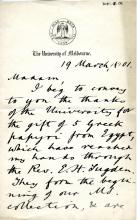 The University of Melbourne.
19 March 1901.
Madam,
I beg to convey
to you the thanks
of the University for
the gift of Greek
papyri from Egypt,
which have reached
my hands through
the Rev. E. H. Sugden
They form the begin-
ning of our MS.
collection, & are